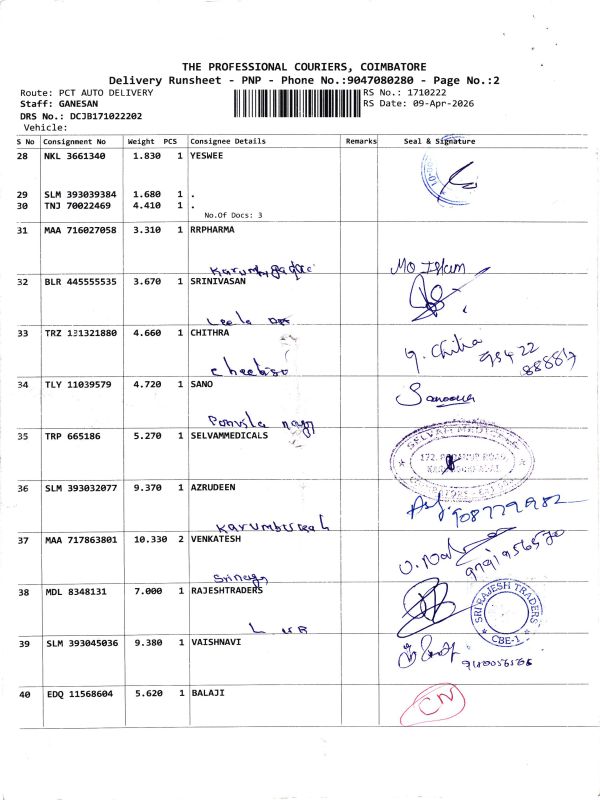 THE PROFESSIONAL COURIERS, COIMBATORE
Delivery Runsheet - PNP - Phone No.:9047080280 - Page No.:2
Route: PCT AUTO DELIVERY
Staff: GANESAN
DRS No.: DCJB171022202
Vehicle:
RS No.: 1710222
RS Date: 09-Apr-2026
S No Consignment No Weight PCS Consignee Details Remarks Seal & Signature
28 NKL 3661340 1.830 1 YESWEE
29 SLM 393039384 1.680 1 .
30 TNJ 70022469 4.410 1 .
No.Of Docs: 3
31 MAA 716027058 3.310 1 RRPHARMA
32 BLR 445555535 3.670 1 SRINIVASAN
33 TRZ 131321880 4.660 1 CHITHRA
34 TLY 11039579 4.720 1 SANO
35 TRP 665186 5.270 1 SELVAMMEDICALS
36 SLM 393032077 9.370 1 AZRUDEEN
37 MAA 717863801 10.330 2 VENKATESH
Srinagr
38 MDL 8348131 7.000 1 RAJESHTRADERS
SRI RAJESH TRADERS
CBE-1
39 SLM 393045036 9.380 1 VAISHNAVI
40 EDQ 11568604 5.620 1 BALAJI
CN